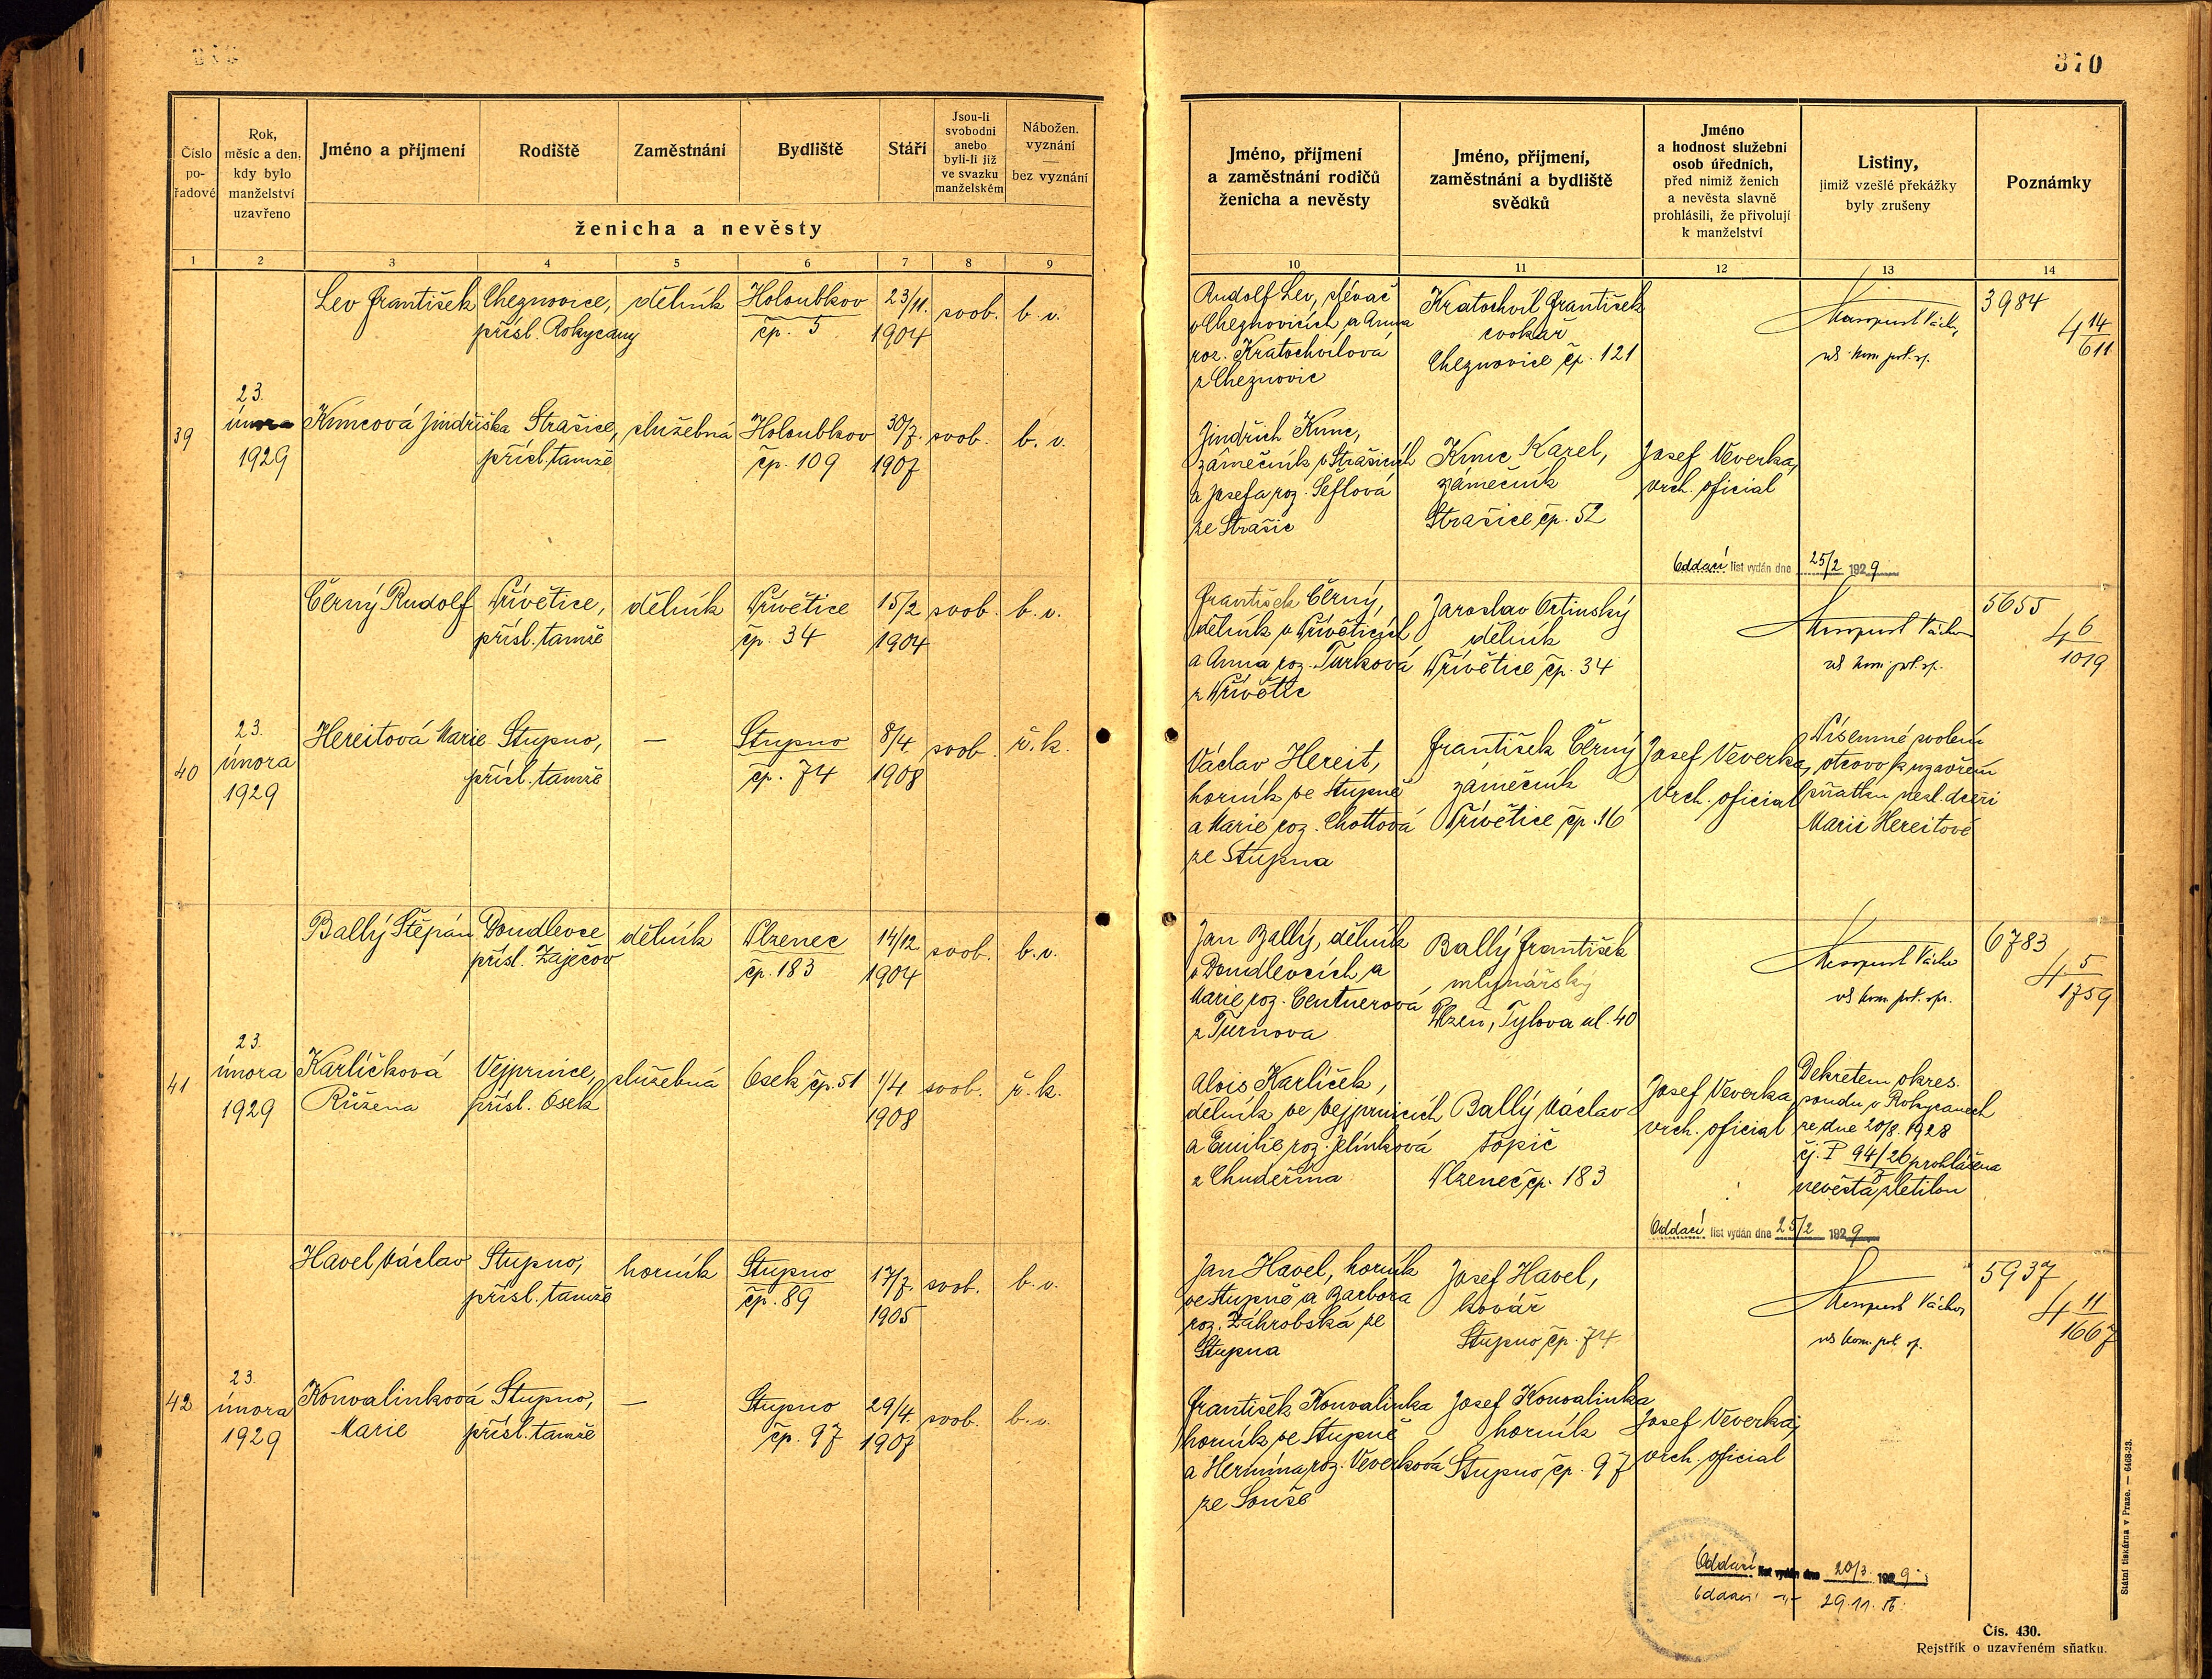 370
Číslo
po-
řadové
Rok,
měsíc a den,
kdy bylo
manželství
uzavřeno
Jméno a příjmení
Rodiště
Zaměstnání
Bydliště
Stáří
Jsou-li
svobodni
anebo
byli-li již
ve svazku
manželském
Nábožen.
vyznání
—
bez vyznání
ženicha a nevěsty
1 2 3 4 5 6 7 8 9
Lev František
Cheznovice,
přísl. Rokycany
dělník
Holoubkov
čp. 5
23/11.
1904
svob.
b. v.
39
23.
února
1929
Kuncová Jindřiška
Strašice,
přísl. tamže
služebná
Holoubkov
čp. 109
30/7.
1907
svob.
b. v.
Černý Rudolf
Přívětice,
přísl. tamže
dělník
Přívětice
čp. 34
15/2
1904
svob.
b. v.
40
23.
února
1929
Hereitová Marie
Stupno,
přísl. tamže
—
Stupno
čp. 74
8/4.
1908
svob.
ř. k.
Ballý Štěpán
Doudlevce
přísl. Zaječov
dělník
Plzenec
čp. 183
14/12
1904
svob.
b. v.
41
23.
února
1929
Karlíčková
Růžena
Vejprnice,
přísl. Osek
služebná
Osek čp. 51
1/4
1908
svob.
ř. k.
Havel Václav
Stupno,
přísl. tamže
horník
Stupno
čp. 89
17/7.
1905
svob.
b. v.
42
23.
února
1929
Konvalinková
Marie
Stupno,
přísl. tamže
—
Stupno
čp. 97
29/4.
1907
svob.
b. v.
Jméno, příjmení
a zaměstnání rodičů
ženicha a nevěsty
Jméno, příjmení,
zaměstnání a bydliště
svědků
Jméno
a hodnost služební
osob úředních,
před nimiž ženich
a nevěsta slavně
prohlásili, že přivolují
k manželství
Listiny,
jimiž vzešlé překážky
byly zrušeny
Poznámky
10 11 12 13 14
Rudolf Lev, slévač
v Cheznovicích a Anna
roz. Kratochvílová
z Cheznovic
Kratochvíl František
cvokař
Cheznovice čp. 121
3984
4 14/611
Jindřich Kunc,
zámečník v Strašicích
a Josefa roz. Šeflová
ze Strašic
Kunc Karel,
zámečník
Strašice čp. 52
Josef Veverka,
vrch. oficial
Oddací list vydán dne 25/2 1929
František Černý,
dělník v Příveticích
a Anna roz. Turková
z Přívětic
Jaroslav Ortinský
dělník
Přívětice čp. 34
5655
4 6/1019
Václav Hereit,
horník ve Stupně
a Marie roz. Chottová
ze Stupna
František Černý
zámečník
Přívětice čp. 16
Josef Veverka,
vrch. oficial
Písemné svolení
otcovo k uzavření
sňatku nezl. dceři
Marii Hereitové
Jan Ballý, dělník
v Doudlevcích a
Marie roz. Centnerová
z Turnova
Ballý František
mlynářský
Plzeň, Tylova ul. 40
6783
4 5/1759
Alois Karlíček,
dělník ve Vejprnicích
a Emilie roz. Jelínková
z Chudeřína
Ballý Václav
topič
Plzenec čp. 183
Josef Veverka,
vrch. oficial
Dekretem okres.
soudu v Rokycanech
ze dne 20/8. 1928
čj. P 94/26 prohlášena
nevěsta zletilou
Oddací list vydán dne 25/2 1929
Jan Havel, horník
ve Stupně a Barbora
roz. Záhrobská ze
Stupna
Josef Havel,
kovář
Stupno čp. 74
5937
4 11/1667
František Konvalinka
horník ve Stupně
a Hermína roz. Veverková
ze Souše
Josef Konvalinka
horník
Stupno čp. 97
Josef Veverka,
vrch. oficial
Oddací list vydán dne 20/3. 1929
Oddací -"- 29.11.
Státní tiskárna v Praze. — 6468-23.
Čís. 430.
Rejstřík o uzavřeném sňatku.